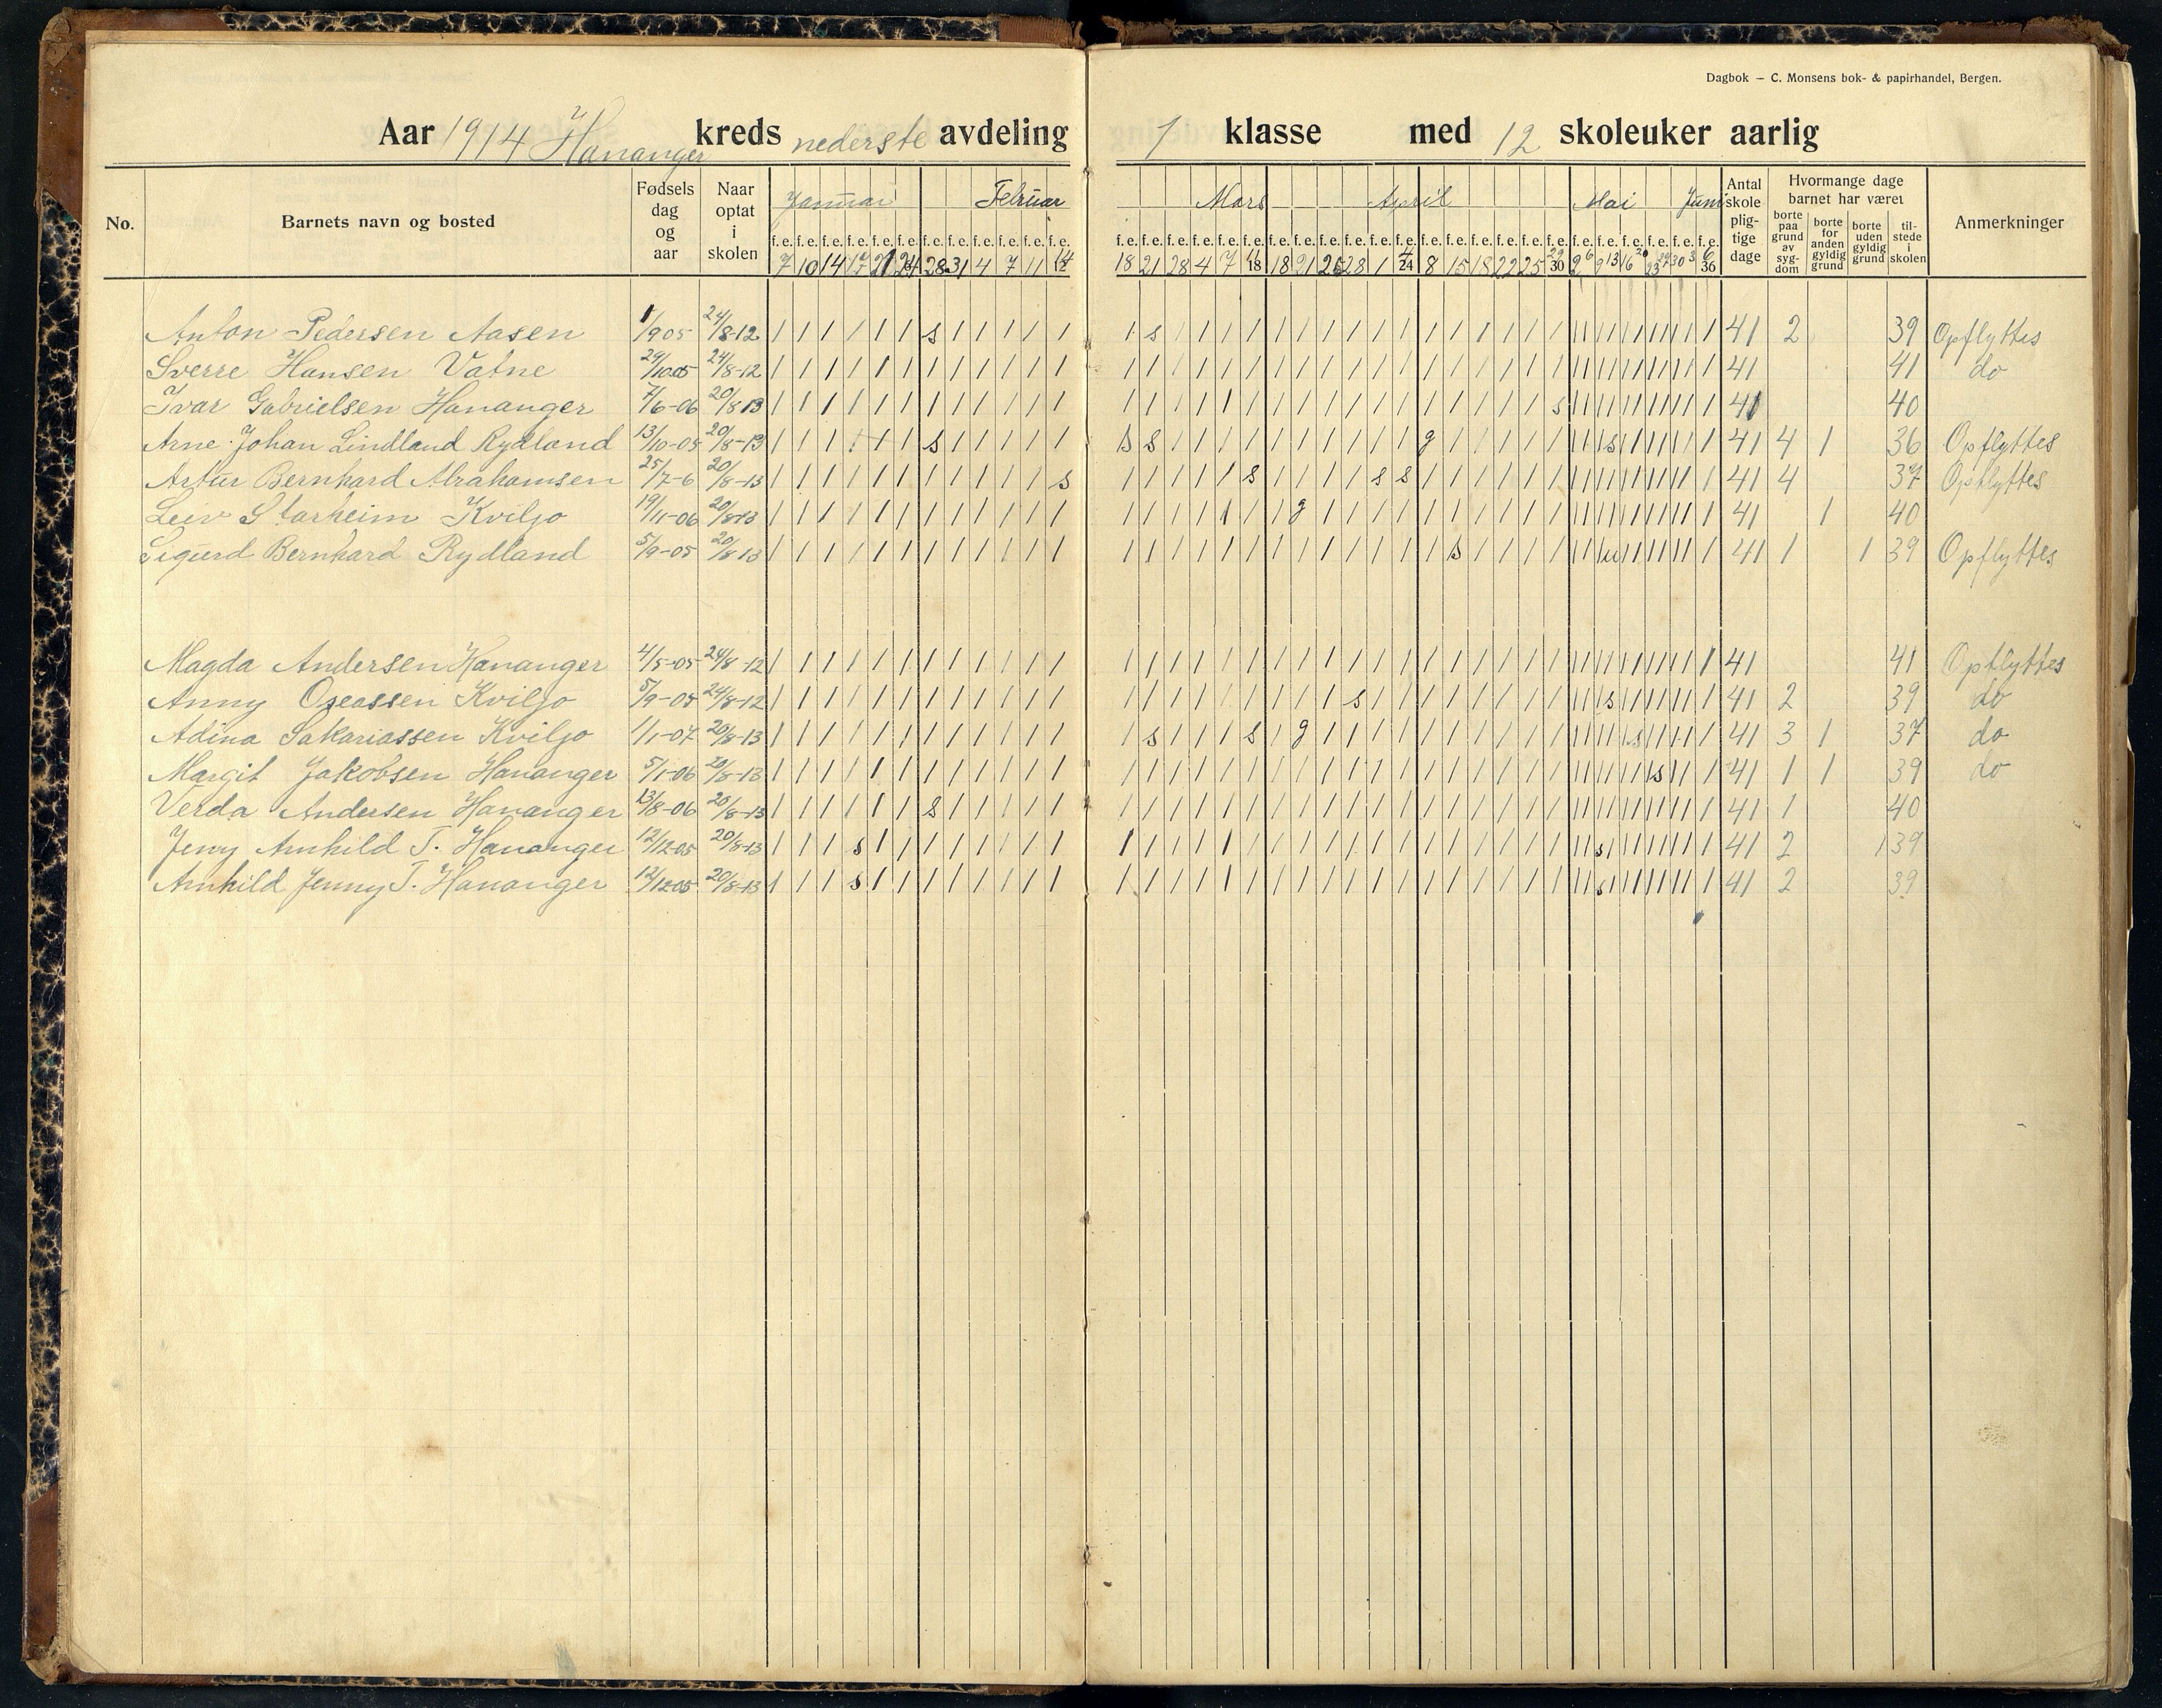 Dagbok – C. Monsens bok- & papirhandel, Bergen.
Aar 1914 Hananger kreds nederste avdeling 1 klasse med 12 skoleuker aarlig
No. Barnets navn og bosted Fødsels dag og aar Naar optat i skolen Januar Februar Mars April Mai Juni Antal skole pligtige dage Hvormange dage barnet har været Anmerkninger
borte paa grund av sygdom borte for anden gyldig grund borte uden gyldig grund tilstede i skolen
f. e. f. e. f. e. f. e. f. e. f. e. f. e. f. e. f. e. f. e. f. e. f. e. f. e. f. e. f. e. f. e. f. e. f. e. f. e. f. e. f. e. f. e. f. e. f. e. f. e. f. e. f. e. f. e. f. e. f. e. f. e. f. e. f. e. f. e. f. e. f. e.
7 10 14 17 21 24 28 31 4 7 11 14 12 18 21 28 4 7 11 18 18 21 25 28 1 4 24 8 15 18 22 25 29 30 2 6 9 13 16 20 23 27 30 3 6 36
Anton Pedersen Aasen 1/9 05 24/8-12 / / / / / / s / / / / / / s / / / / / / / / / / / / / / / / / / / / / / / / / / / 41 2 39 Opflyttes
Sverre Hansen Vatne 29/10 05 24/8-12 41 41 do
Ivar Gabrielsen Hananger 7/6-06 20/8 13 s 41 40
Arne Johan Lindland Rydland 13/10-05 20/8-13 s s s g s 41 4 1 36 Opflyttes
Artur Bernhard Abrahamsen 25/7-6 20/8-13 s s s s 41 4 37 Opflyttes
Leiv Starheim Kviljo 19/11-06 20/8-13 g 41 1 40
Sigurd Bernhard Rydland 5/9-05 20/8 13 s u 41 1 1 39 Opflyttes
Magda Andersen Hananger 4/5-05 24/8-12 41 41 Opflyttes
Anny Oseassen Kviljo 5/9-05 24/8-12 s s 41 2 39 do
Adina Sakariassen Kviljo 1/1-07 20/8-13 s s g s 41 3 1 37 do
Margit Jakobsen Hananger 5/1-06 20/8-13 s 41 1 1 39 do
Verda Andersen Hananger 13/8-06 20/8-13 s 41 1 40
Jenny Arnhild T. Hananger 12/12-05 20/8-13 s s 41 2 1 39
Arnhild Jenny T. Hananger 12/12-05 20/8-13 s s 41 2 39